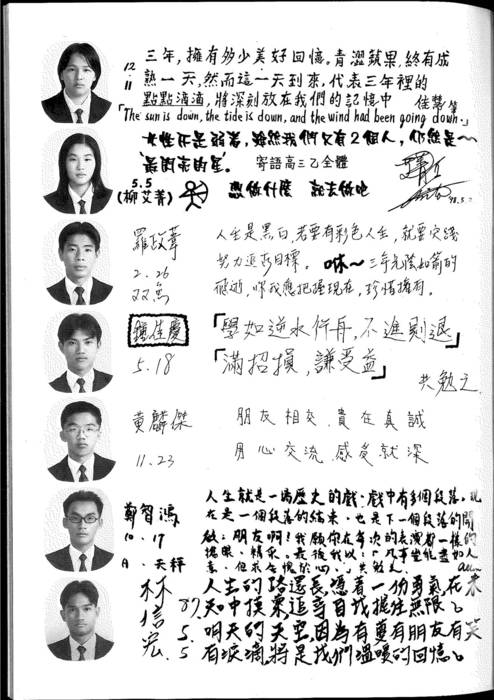 三年,擁有多少美好回憶。青澀蘋果,終有成
12.11
熟一天,然而這一天到來,代表三年裡的
點點滴滴,將深刻放在我們的記憶中 佳慧筆
「The sun is down, the tide is down, and the wind had been going down.」
女性不是弱者,雖然我們只有2個人,仍然是~
"最閃亮的星"。 寄語高三乙全體
5.5
(柳艾菁)
羅政葦
人生是黑白,若要有彩色人生,就要突破
2.26
努力追求目標。 咻~三年光陰如箭的
双魚
飛逝,啡我應把握現在,珍惜擁有。
佳慶
「學如逆水行舟,不進則退」
5.18
「滿招損,謙受益」
共勉之
黃麟傑
朋友相交 貴在真誠
11.23
用心交流 感受就深
鄭智鴻
人生就是一場歷史的戲,戲中有多個段落。現
10.17
在是一個段落的結束,也是下一個段落的開
A. 天秤
林信宏
人生的路還長,憑著一份勇氣,在未
知中摸索,追尋自我握住無限。
明天的天空,因為有更有朋友有笑
5.5
有淚滴,將是我們溫暖的回憶。